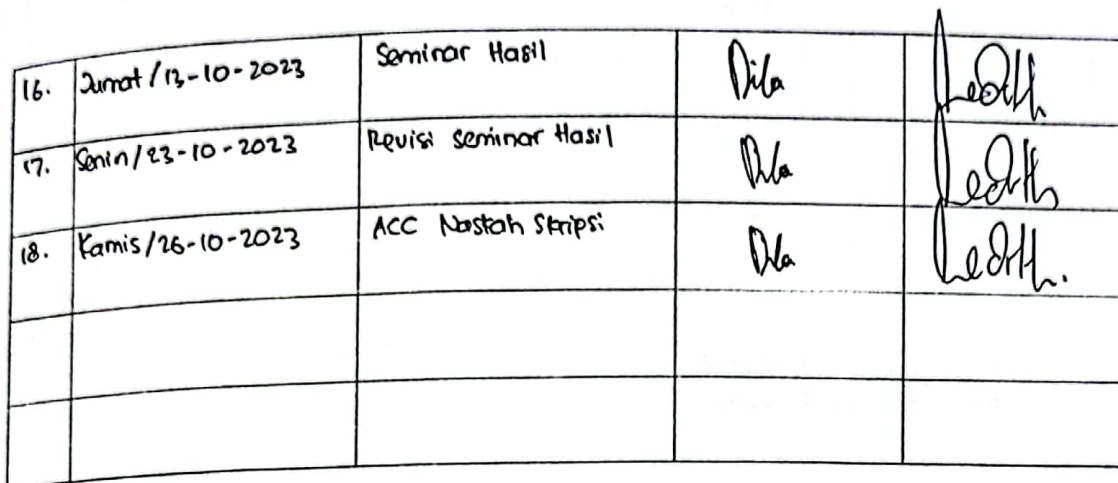 16. Jumat / 13-10-2023 Seminar Hasil Dila
17. Senin / 23-10-2023 Revisi seminar Hasil Dila
18. Kamis / 26-10-2023 ACC Naskah Skripsi Dila